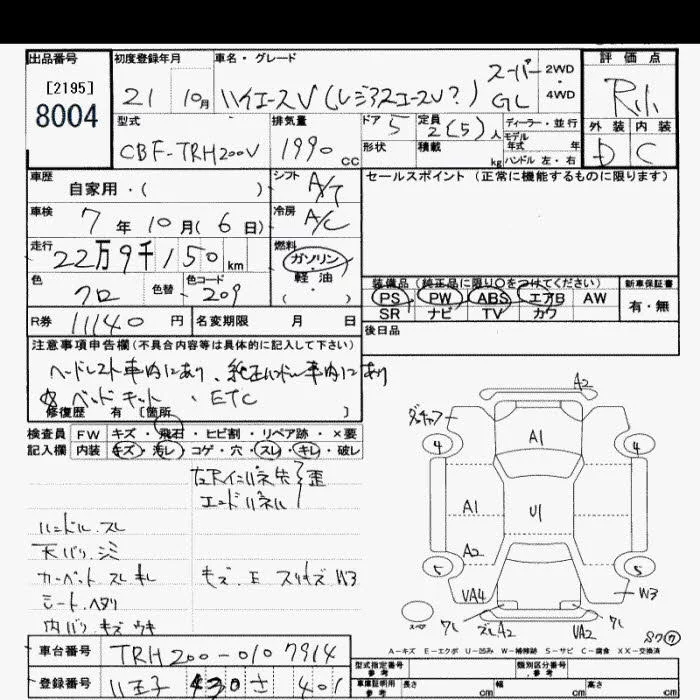 出品番号
[2195]
8004
初度登録年月
21 10月
車名・グレード
ハイエースV(レジアスエースV?)
スーパー GL
2WD
4WD
評価点
外装 内装
D C
型式
CBF-TRH200V
排気量
1990 cc
ドア 5
定員 2(5)人
ディーラー・並行
モデル
年式 年
形状
積載 kg
ハンドル 左・右
車歴
自家用・( )
シフト
A/T
セールスポイント(正常に機能するものに限ります)
車検
7年10月(6日)
冷房
A/C
走行
22万9千150km
燃料
ガソリン
軽油
( )
色
クロ
色替
色コード
209
装備品(純正品に限り○をつけてください)
新車保証書
PS PW ABS エアB AW
SR ナビ TV カワ
有・無
R券 11140 円
名変期限 月 日
後日品
注意事項申告欄(不具合内容等は具体的に記入して下さい)
ヘッドレスト車内にあり、純正ハンドル車内にあり
ベッドキット・ETC
修復歴 有 [箇所 ]
検査員 FW キズ・飛石・ヒビ割・リペア跡・×要
記入欄 内装 キズ・汚レ・コゲ・穴・スレ・キレ・破レ
左Rインパネ先 歪
エンドパネル
ハンドル.スレ
天バリ.シミ
カーペット スレ キレ
モズ.E スリキズ W3
シート.ヘタリ
内バリ.キズ ウキ
A2
A1
4
4
A1
U1
A2
5
5
VA4
W3
スペア
ズレA2
VA2
A-キズ E-エクボ U-凹み W-補修跡 S-サビ C-腐食 XX-交換済
車台番号
TRH200-0107914
型式指定番号
参考
類別区分番号
参考
登録番号
八王子 430 さ 401
車庫証明用
参考
長さ cm
幅 cm
高さ cm